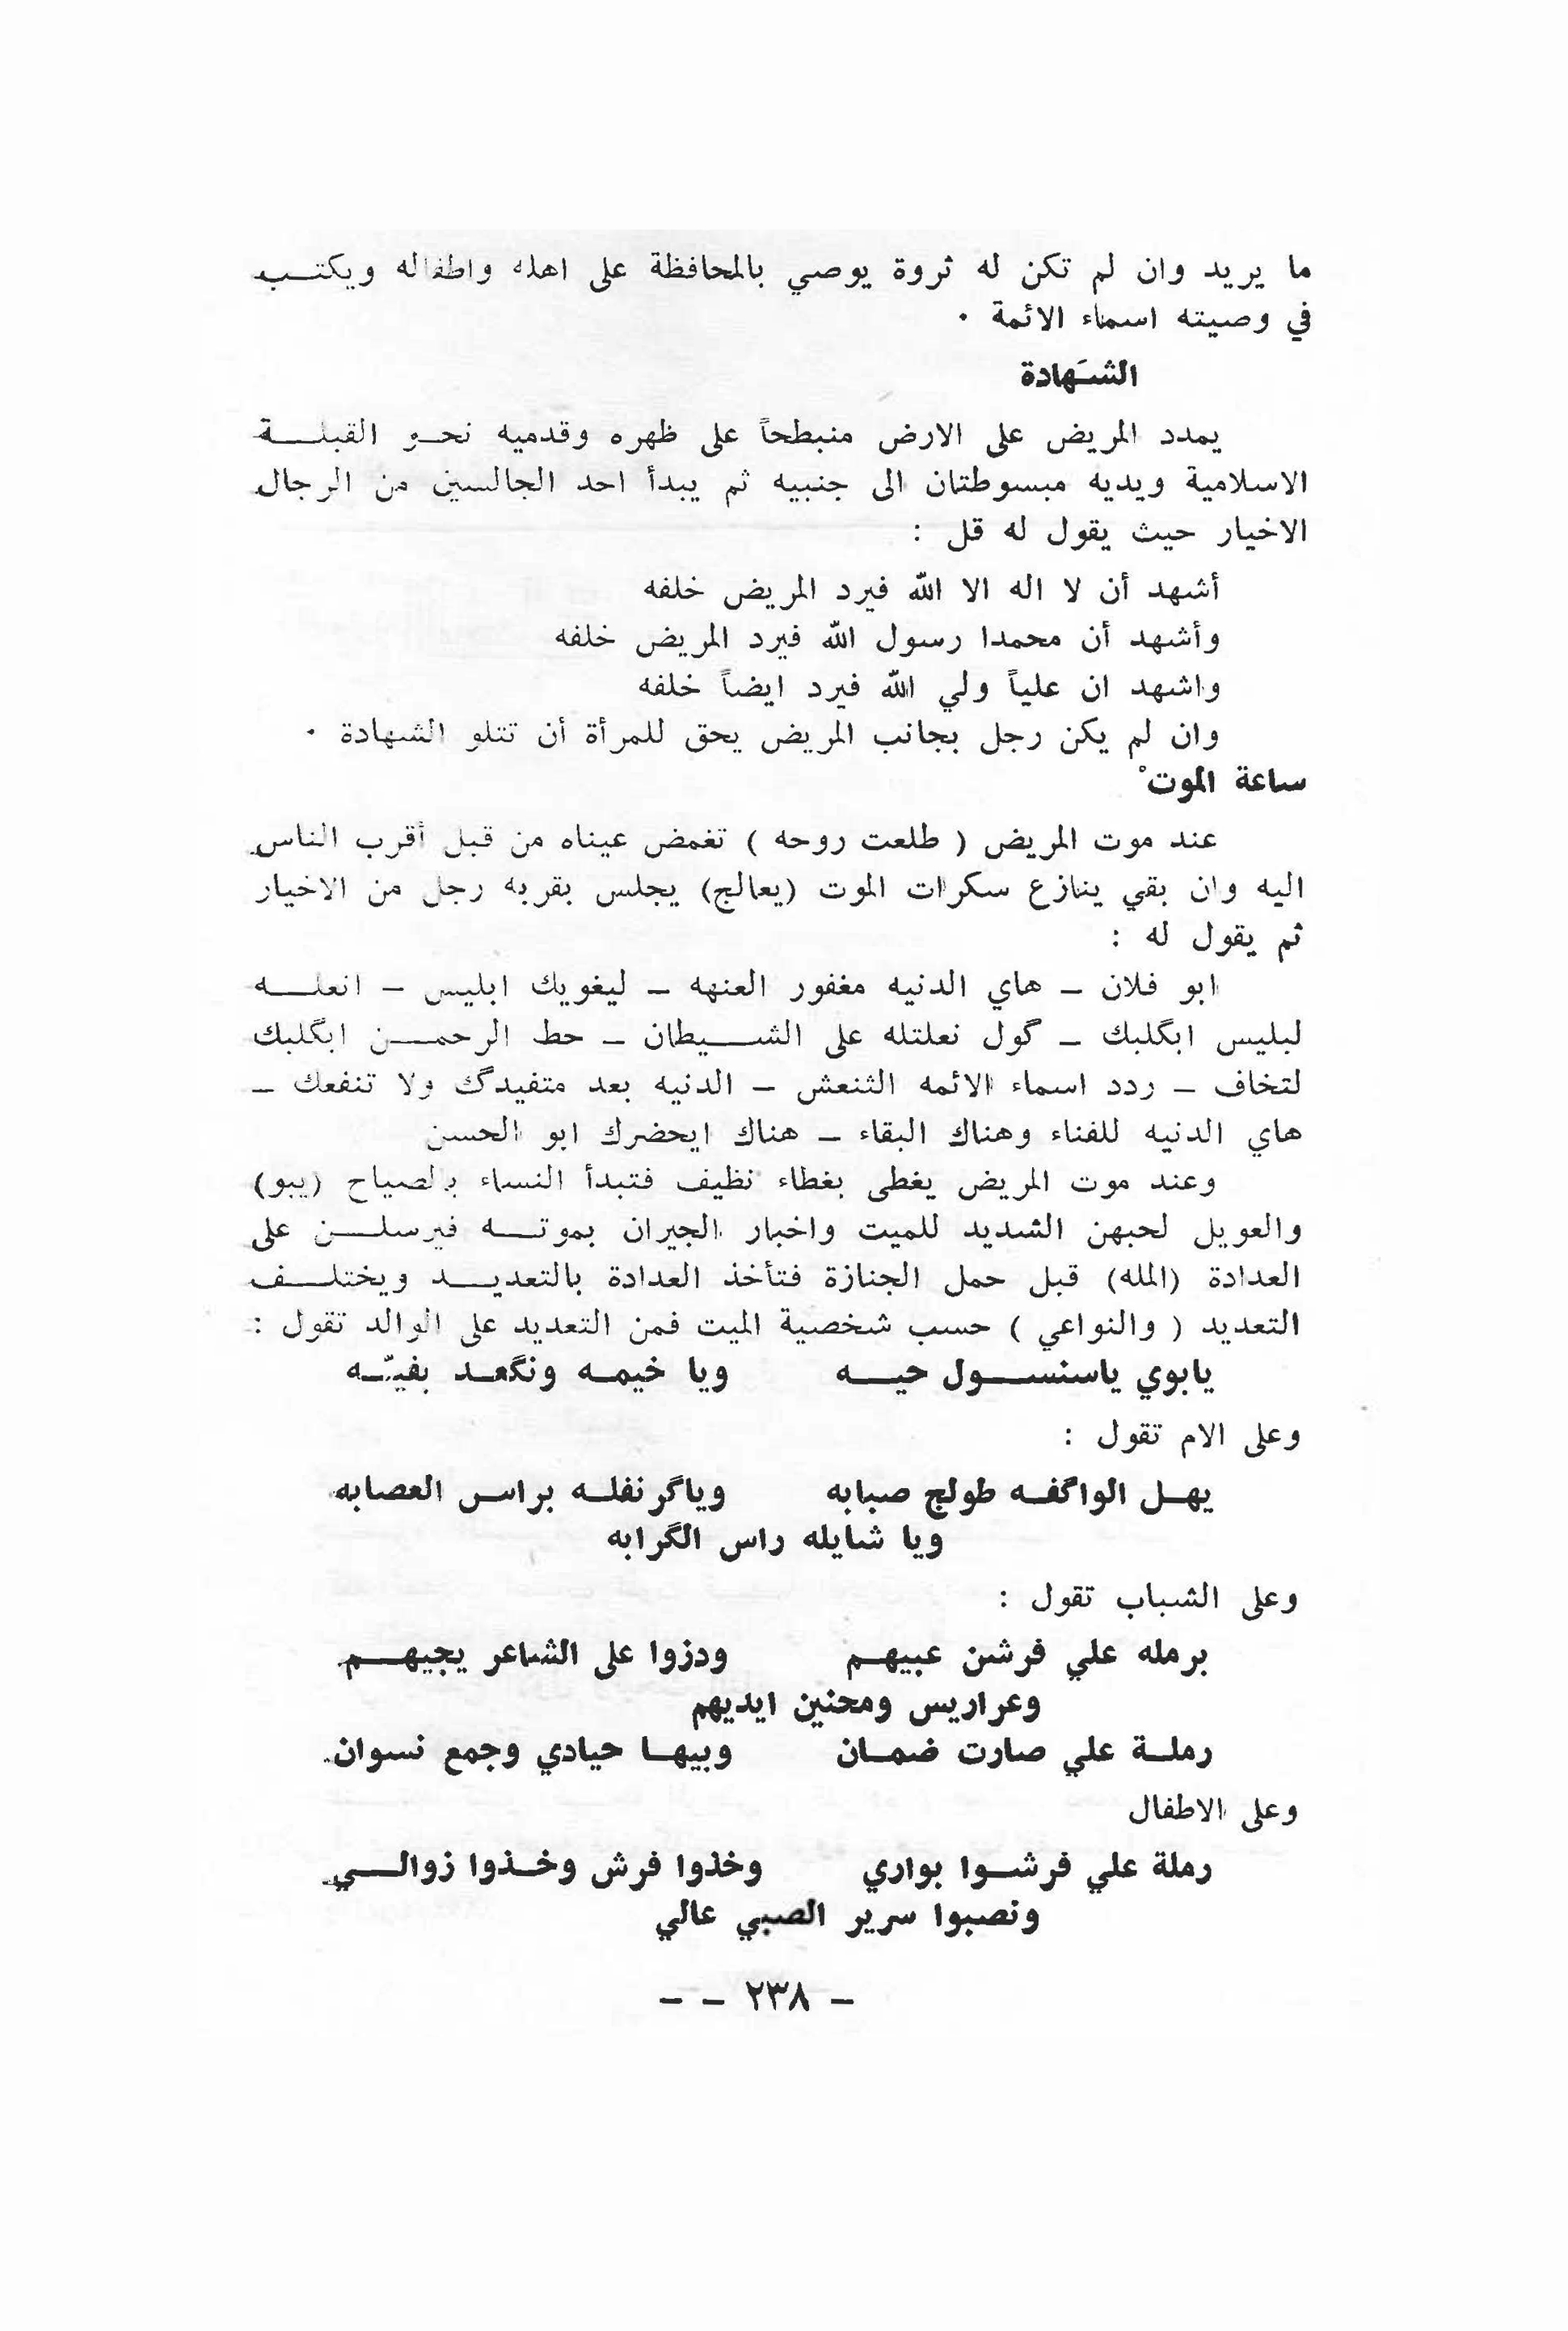 ما يريد وان لم تكن له ثروة يوصي بالمحافظة على اهله واطفاله ويكتـــب
في وصيته اسماء الائمة ٠
الشَهادة
يمدد المريض على الارض منبطحاً على ظهره وقدميه نحــو القبلـــة
الاسلامية ويديه مبسوطتان الى جنبيه ثم يبدأ احد الجالسين من الرجال
الاخيار حيث يقول له قل :
أشهد أن لا اله الا الله فيرد المريض خلفه
وأشهد أن محمدا رسول الله فيرد المريض خلفه
واشهد ان علياً ولي الله فيرد ايضاً خلفه
وان لم يكن رجل بجانب المريض يحق للمرأة أن تتلو الشهادة ٠
ساعة الموتْ
عند موت المريض ( طلعت روحه ) تغمض عيناه من قبل أقرب الناس
اليه وان بقي ينازع سكرات الموت (يعالج) يجلس بقربه رجل من الاخيار
ثم يقول له :
ابو فلان – هاي الدنيه مغفور العنهه – ليغويك ابليس – انعلـــه
لبليس ابگلبك – گول نعلتله على الشـــيطان – حط الرحمـــن ابگلبك
لتخاف – ردد اسماء الائمه الثنعش – الدنيه بعد متفيدگ ولا تنفعك –
هاي الدنيه للفناء وهناك البقاء – هناك ايحضرك ابو الحسن
وعند موت المريض يغطى بغطاء نظيف فتبدأ النساء بالصياح (يبو)
والعويل لحبهن الشديد للميت واخبار الجيران بموتـــه فيرسلـــن على
العدادة (المله) قبل حمل الجنازة فتأخذ العدادة بالتعديـــد ويختلـــف
التعديد ( والنواعي ) حسب شخصية الميت فمن التعديد على الوالد تقول :
يابوي ياسنســـول حيـــه ويا خيمـه ونگعـد بفيّـه
وعلى الام تقول :
يهـل الواگفـه طولج صبابه وياگرنفلـه براس العصابه
ويا شايله راس الگرابه
وعلى الشباب تقول :
برمله علي فرشن عبيهـم ودزوا على الشاعر يجيهـــم
وعراريس ومحنين ايديهم
رملـة علي صارت ضمـان وبيهـا حيادي وجمع نسوان
وعلى الاطفال
رملة علي فرشـــوا بواري وخذوا فرش وخـذوا زوالـــي
ونصبوا سرير الصبي عالي
– ٢٣٨ – –